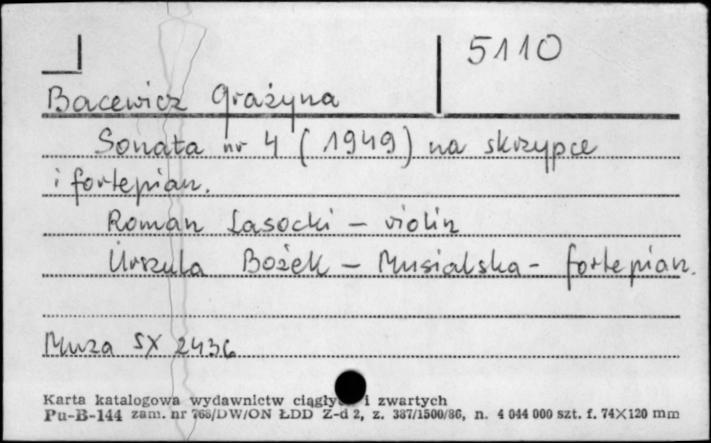 5110
Bacewicz Grażyna
Sonata nr 4 (1949) na skrzypce
i fortepian.
Roman Lasocki – violin
Urszula Bożek – Musialska – fortepian.
Muza SX 2436
Karta katalogowa wydawnictw ciągłyc i zwartych
Pu-B-144 zam. nr 768/DW/ON ŁDD Z-d 2, z. 387/1500/86, n. 4 044 000 szt. f. 74×120 mm